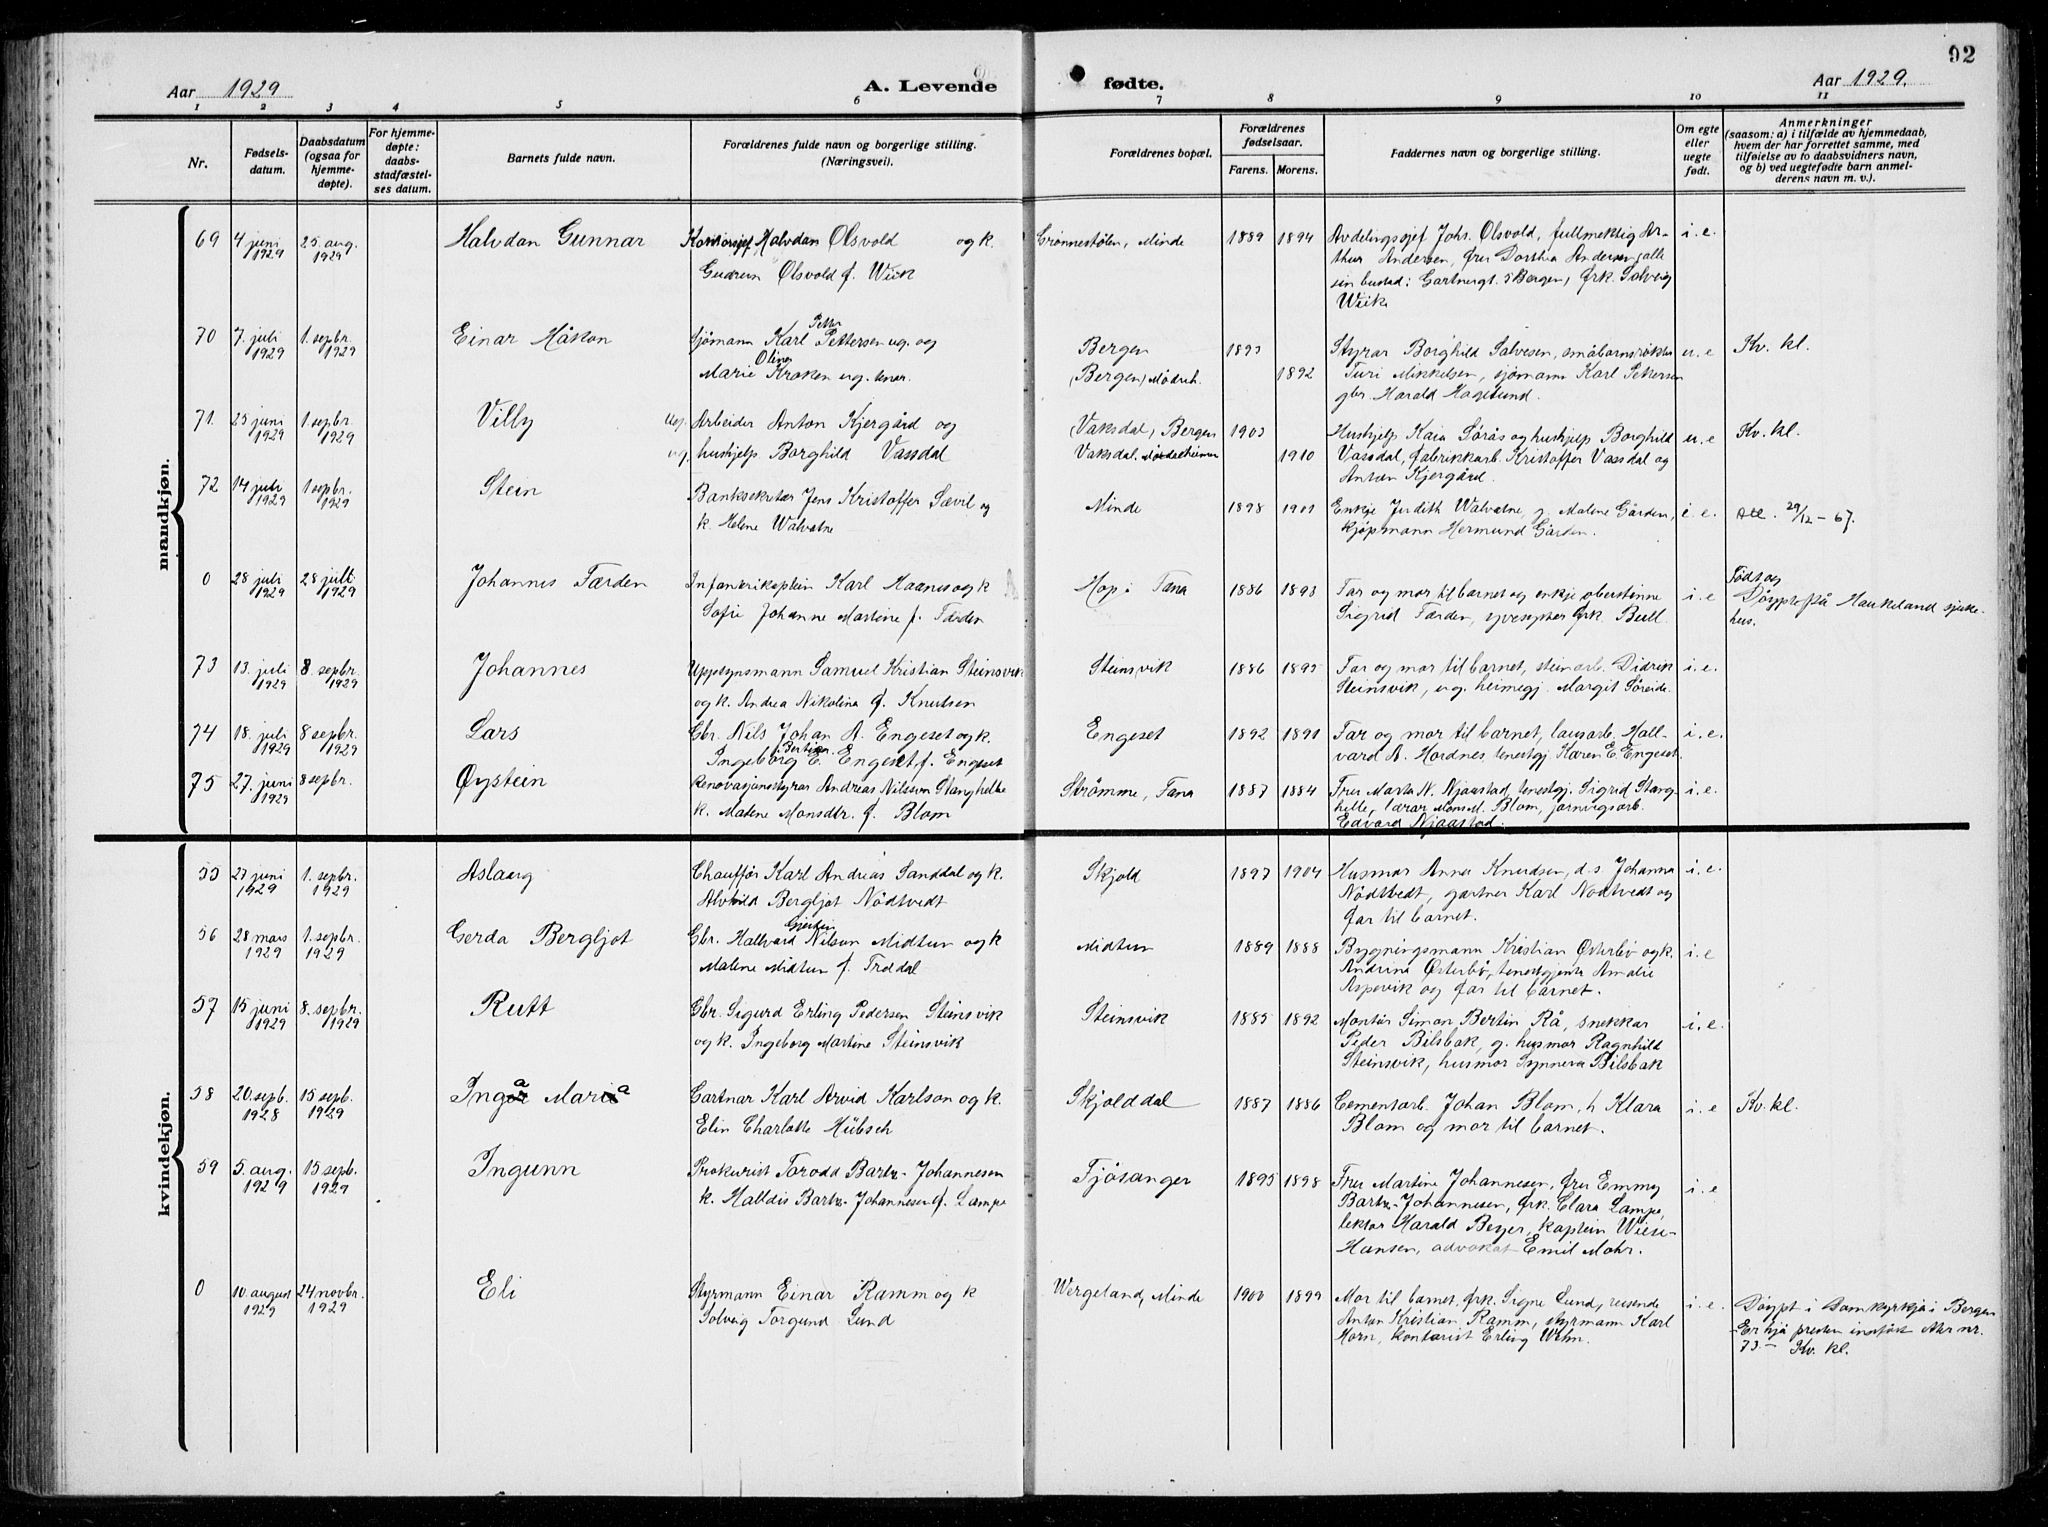 92
Aar 1929
A. Levende
fødte.
Aar 1929.
1 2 3 4 5 6 7 8 9 10 11
Nr.
Fødsels-
datum.
Daabsdatum
(ogsaa for
hjemme-
døpte).
For hjemme-
døpte:
daabs-
stadfæstel-
ses datum.
Barnets fulde navn.
Forældrenes fulde navn og borgerlige stilling.
(Næringsvei).
Forældrenes bopæl.
Forældrenes
fødselsaar.
Farens. Morens.
Faddernes navn og borgerlige stilling.
Om egte
eller
uegte
født.
Anmerkninger
(saasom: a) i tilfælde av hjemmedaab,
hvem der har forrettet samme, med
tilføielse av to daabsvidners navn,
og b) ved uegtefødte barn anmel-
derens navn m. v.).
mandkjøn.
69 4 juni 1929 25 aug. 1929 Halvdan Gunnar
Kontorsjef Halvdan Olsvold og k.
Gudrun Olsvold f. Wiik
Grønnestølen, Minde 1889 1894
Avdelingssjef Johs. Olsvold, fullmektig Ar-
thur Andersen, fru Dorthea Andersen, alle
sin bustad: Gartnergt. 5 Bergen, frk. Solveig
Wiik
i. e.
70 7. juli 1929 1. sepbr. 1929 Einar Håkon
Sjømann Karl Petter Pettersen ug. og
Marie Olina Kroken ug. tenar.
Bergen 1893
(Bergen) Mødreh. 1892
Styrar Borghild Salvesen, småbarnsrøkter
Turi Mikkelsen, sjømann Karl Petersen
gbr. Harald Hagelund.
u. e Kv. kl.
71. 25 juni 1929 1. sepbr. 1929 Villy
ug. Arbeider Anton Kjergård og
ug. hushjelp Borghild Vassdal
Vaksdal, Bergen 1903
Vaksdal. Mødreheimen 1910
Hushjelp Kaia Sørås og hushjelp Borghild
Vassdal, fabrikkarb. Kristoffer Vassdal og
Anton Kjergård.
u. e Kv. kl.
72 14 juli 1929 1 sepbr. 1929 Stein
Banksekretær Jens Kristoffer Sævil og
k. Helene Walvatne
Minde 1898 1901
Enkje Judith Walvatne, g. Malene Gården,
kjøpmann Hermund Gården.
i. e. Att. 29/12-67.
0 28 juli 1929 28 juli 1929 Johannes Færden
Infanterikaptein Karl Haanes og k
Sofie Johanne Martine f. Færden
Hop i Fana 1886 1893
Far og mor til barnet og enkje oberstinne
Sigrid Færden, yversyster frk. Bull.
i. e
Født og
Døypt på Haukeland sjuke-
hus.
73 13. juli 1929 8 sepbr. 1929 Johannes
Uppsynsmann Samuel Kristian Steinsvik
og k. Andrea Nikolina f. Knutsen
Steinsvik 1886 1895
Far og mor til barnet, steinarb. Didrik
Steinsvik, ug. heimegj. Margit Søreide.
i. e.
74 18. juli 1929 8 sepbr. 1929 Lars
Gbr. Nils Johan A. Engeset og k.
Ingeborg Bertina E. Engeset f. Engeset
Engeset 1892 1891
Far og mor til barnet, lausarb. Hall-
vard A. Hordnes, tenestgj. Karen E. Engeset.
i. e.
75 27. juni 1929 8 sepbr. Øystein
Renovasjonsstyrar Andreas Nilsson Stanghelle
k. Malene Monsdtr. f. Blom
Strømme, Fana 1887 1884
Fru Marta N. Njaastad, tenestgj. Sigrid Stang-
helle, lærar Mons M. Blom, jarnvegsarb.
Edvard Njaastad.
i. e.
kvindekjøn.
55 27 juni 1929 1. sepbr. 1929 Aslaug
Chauffør Karl Andreas Sanddal og k.
Alvhild Bergljot Nödtvedt
Skjold 1897 1904
Husmor Anna Knudsen, d.s. Johanna
Nödtvedt, gartner Karl Nödtvedt og
far til barnet.
i. e.
56 28 mars 1929 1. sepbr. 1929 Gerda Bergljot
Gbr. Hallvard Nilson Midtun og k
Malene Midtun f. Trædal
Midtun 1889 1888
Bygningsmann Kristian Østerbø og k.
Andrina Østerbø, tenestgjenta Amalie
Aspevik og far til barnet.
i. e
57 15 juni 1929 8. sepbr. 1929 Rutt
Gbr. Sigurd Erling Pedersen Steinsvik
og k. Ingeborg Martine Steinsvik
Steinsvik 1885 1892
Montør Simon Bertin Rå, snekkar
Peder Bilsbak, g. husmor Ragnhild
Steinsvik, husmor Synneva Bilsbak
i. e.
58 20. sepb. 1928 15 sepb. 1929 Inga Maria
Gartnar Karl Arvid Karlson og k.
Elin Charlotte Hübsch
Skjolddal 1887 1886
Cementarb. Johan Blom, h Klara
Blom og mor til barnet.
i. e Kv. kl.
59 5. aug. 1929 15 sepb. 1929 Ingunn
Prokurist Torodd Bartz-Johannesen
k. Halldis Bartz-Johannesen f. Lampe
Fjøsanger 1895 1898
Fru Martine Johannesen, fru Emmy
Bartz-Johannesen, frk. Clara Lampe,
lektor Harald Beyer, kaptein Wiese-
Hansen, advokat Emil Mohr.
i. e
0 10. august 1929 24 novbr. 1929 Eli
Styrmann Einar Ramm og k
Solveig Torgund Lund
Wergeland, Minde 1900 1899
Mor til barnet, frk. Signe Lund, reisende
Anton Kristian Ramm, styrmann Karl
Horn, kontorist Erling Wehn.
i. e.
Døypt i Domkyrkja i Bergen
Er hjå presten innført der nr.
73. - Kv. kl.